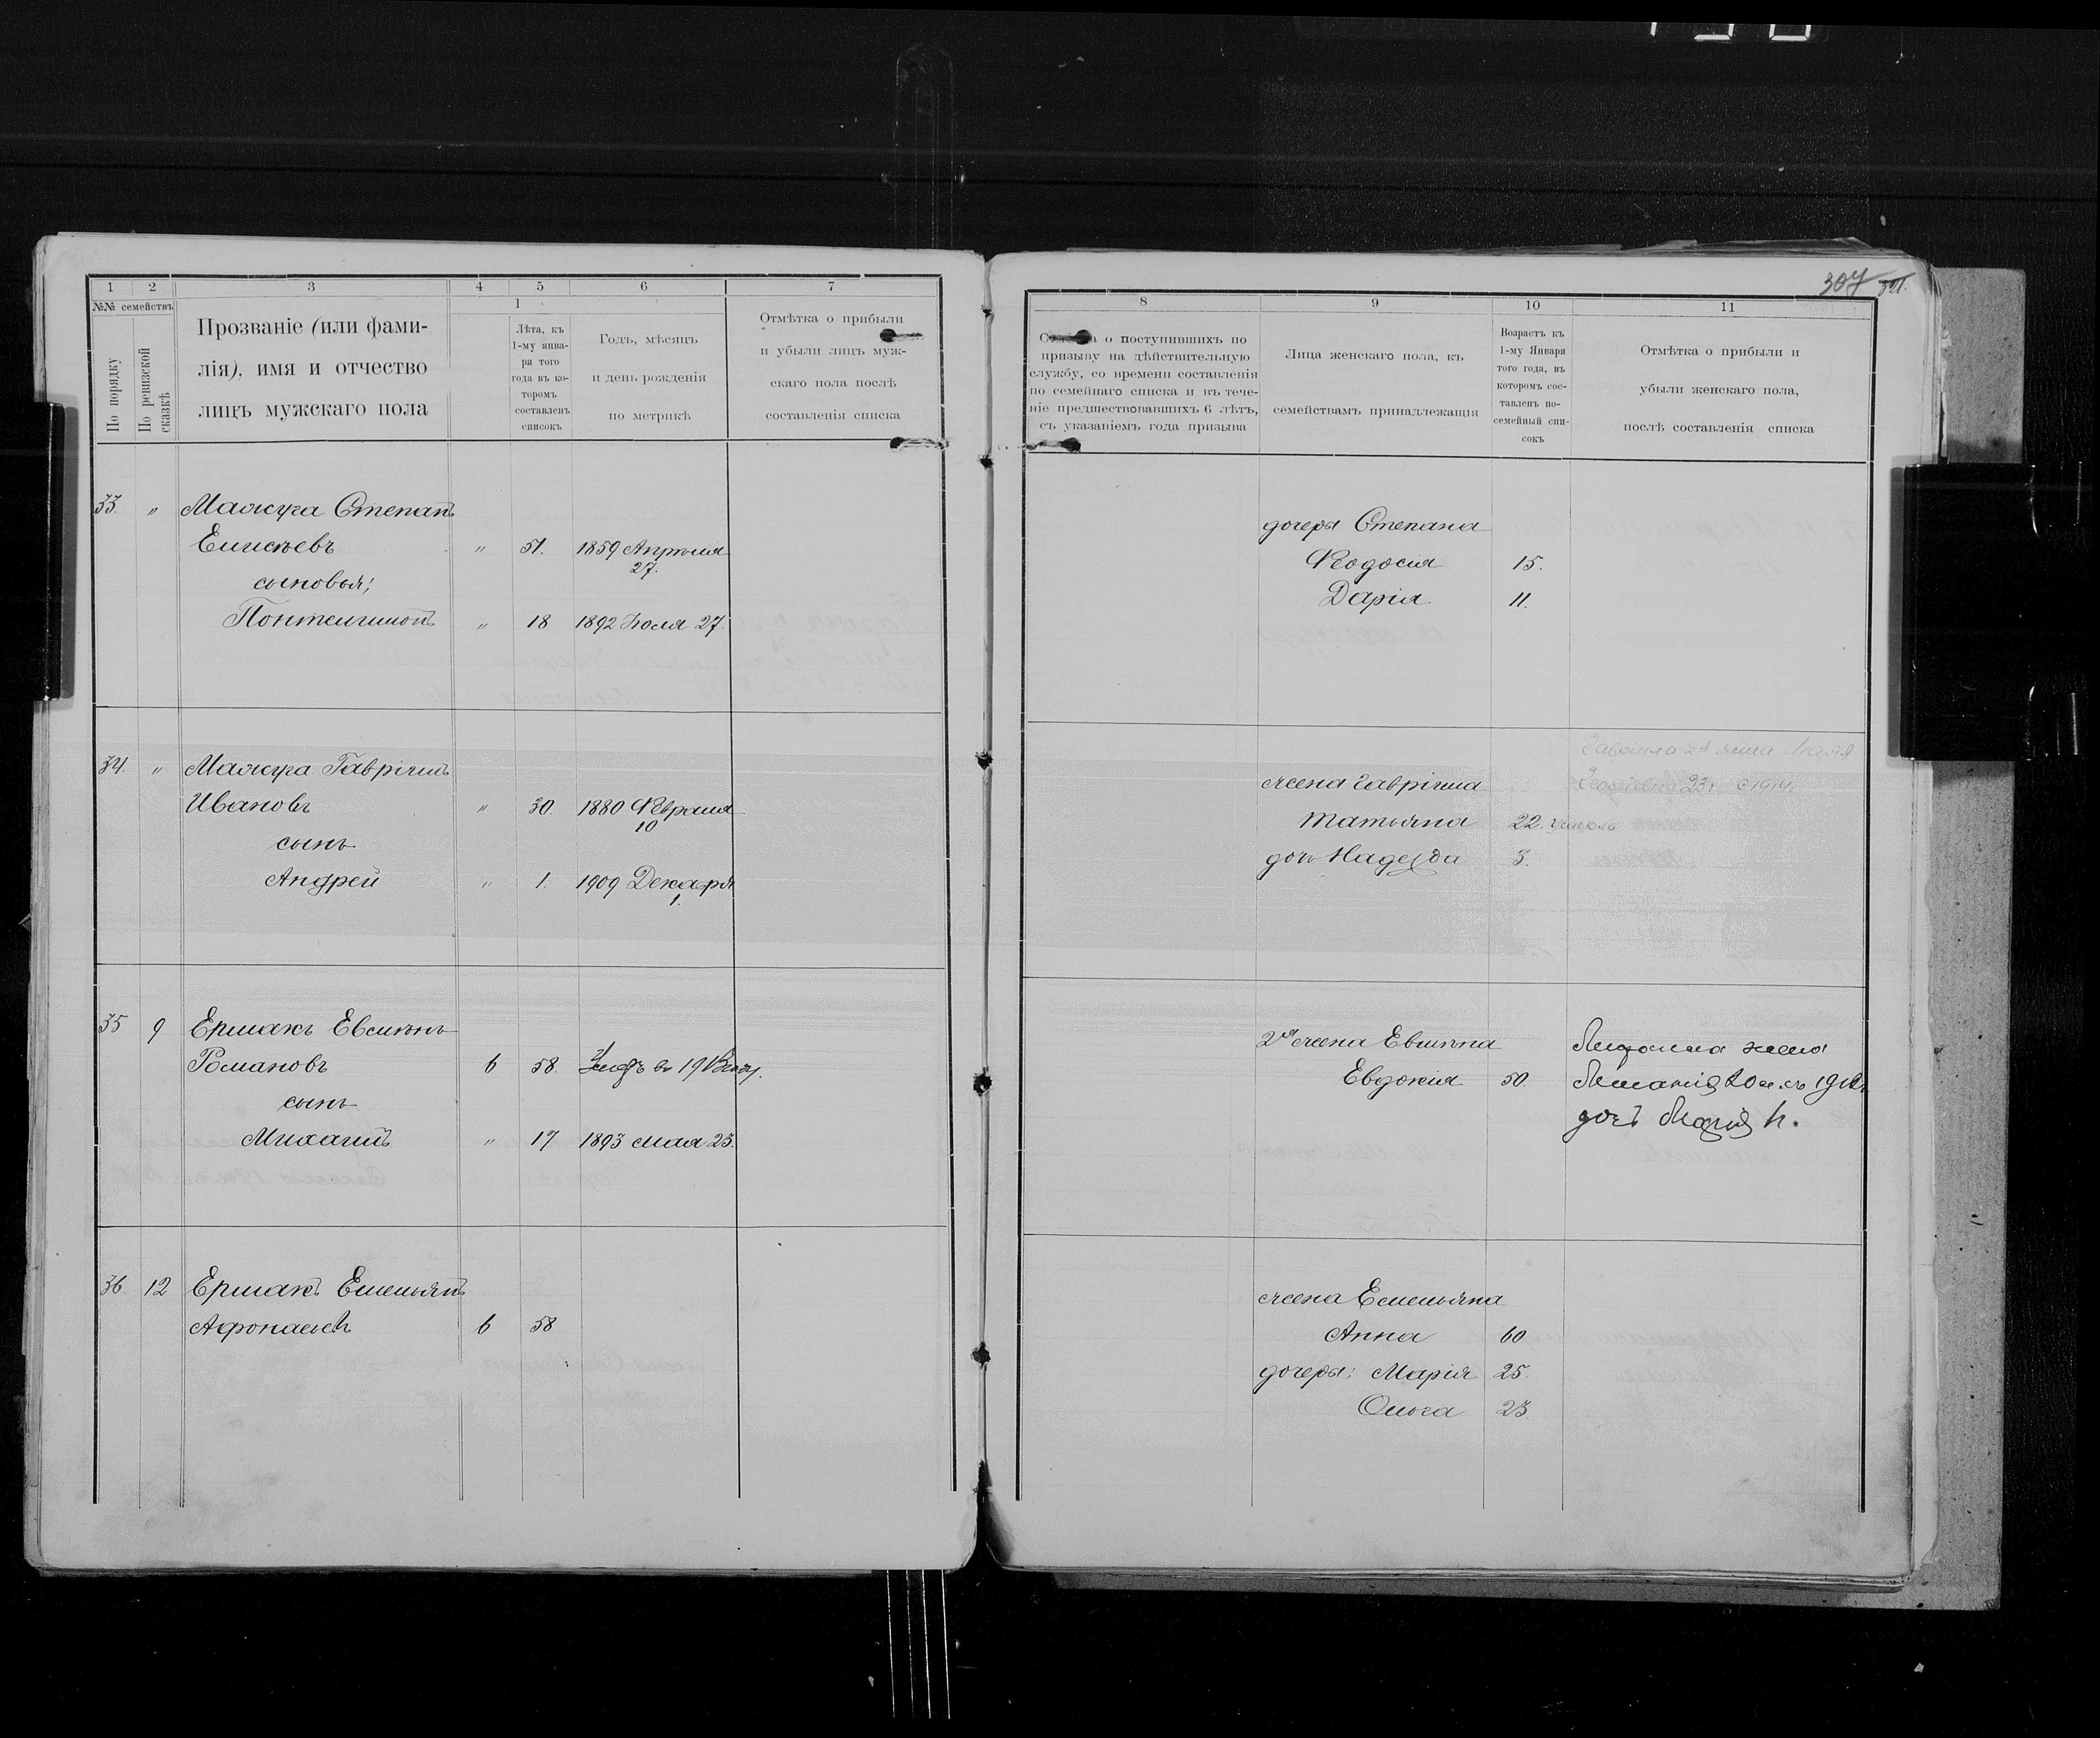 1 2 3 4 5 6 7
№№ семействъ
По порядку
По ревизской сказкѣ
Прозваніе (или фами-
лія), имя и отчество
лицъ мужскаго пола
I
Лѣта, къ
1-му янва-
ря того
года въ ко-
торомъ
составленъ
списокъ
Годъ, мѣсяцъ
и день рожденія
по метрикѣ
Отмѣтка о прибыли
и убыли лицъ муж-
скаго пола послѣ
составленія списка
33. " Мажуга Степанъ
Елисѣевъ " 51. 1859 Апрѣля
27.
сыновья;
Понтелимонъ " 18 1892 Іюля 27.
34. " Мажуга Гавріилъ
Ивановъ " 30. 1880 Февраля
10
сынъ
Андрей " 1. 1909 Декабря
1.
35 9 Ермакъ Евсиѣнъ
Романовъ 6 58.
сынъ
Михаилъ " 17 1893 мая 23.
36. 12 Ермакъ Емельянъ
Афонасьевъ 6 58
307 321.
8 9 10 11
о поступившихъ по
призыву на дѣйствительную
службу, со времени составленія
по семейнаго списка и въ тече-
ніе предшествовавшихъ 6 лѣтъ,
съ указаніемъ года призыва
Лица женскаго пола, къ
семействамъ принадлежащія
Возрастъ къ
1-му Января
того года, въ
которомъ сос-
тавленъ по-
семейный спи-
сокъ
Отмѣтка о прибыли и
убыли женскаго пола,
послѣ составленія списка
дочеры Степана
Феодосія 15.
Дарія 11.
жена Гавріила 23 1914
Татьяна 22.
дочь Надежда 3.
2я жена
Евдокія 50.
дочь Марія
жена Емельяна
Анна 60
дочеры: Марія 25.
Ольга 23.